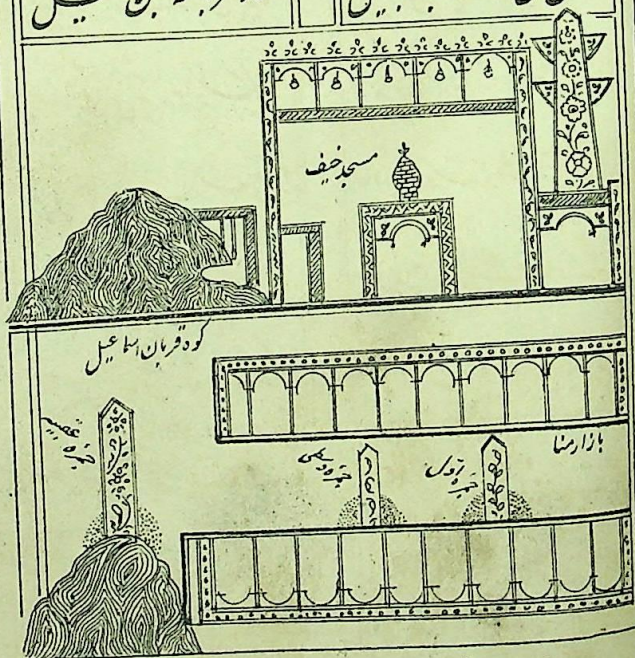 مسجد خیف
کوه قربان اسماعیل
بازار منا
جمره عقبه
جمره وسطی
جمره اولی